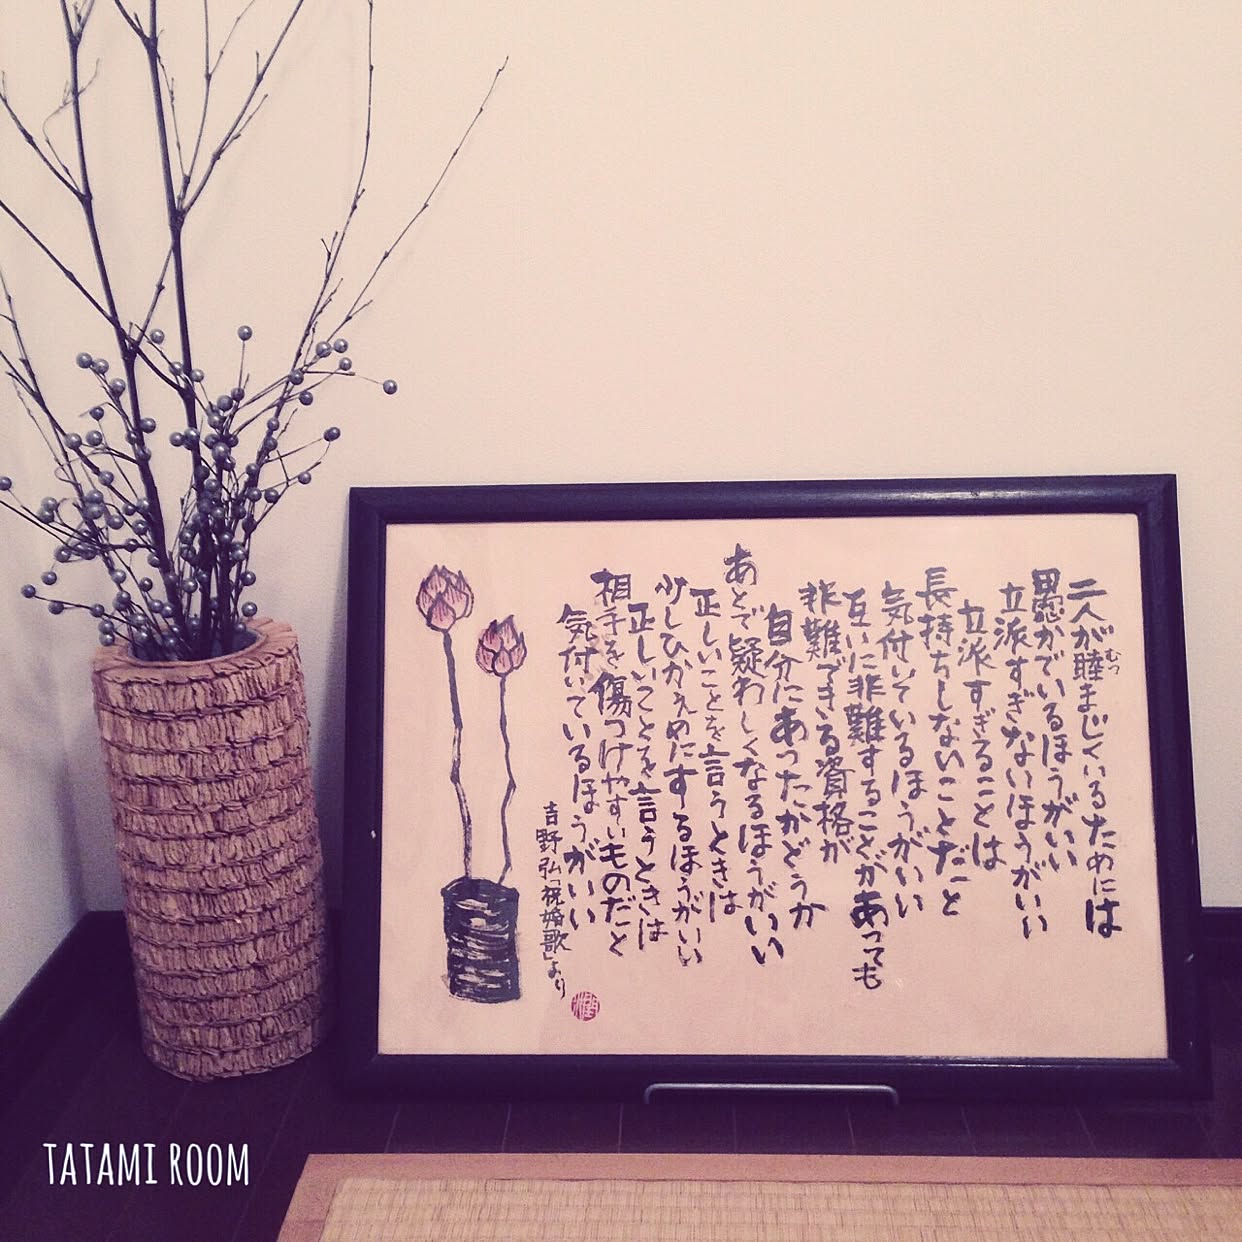 二人が睦まじくいるためには
むつ
愚かでいるほうがいい
立派すぎないほうがいい
立派すぎることは
長持ちしないことだと
気付いているほうがいい
互いに非難することがあっても
非難できる資格が
自分にあったかどうか
あとで疑わしくなるほうがいい
正しいことを言うときは
少しひかえめにするほうがいい
正しいことを言うときは
相手を傷つけやすいものだと
気付いているほうがいい
吉野弘「祝婚歌」より
TATAMI ROOM